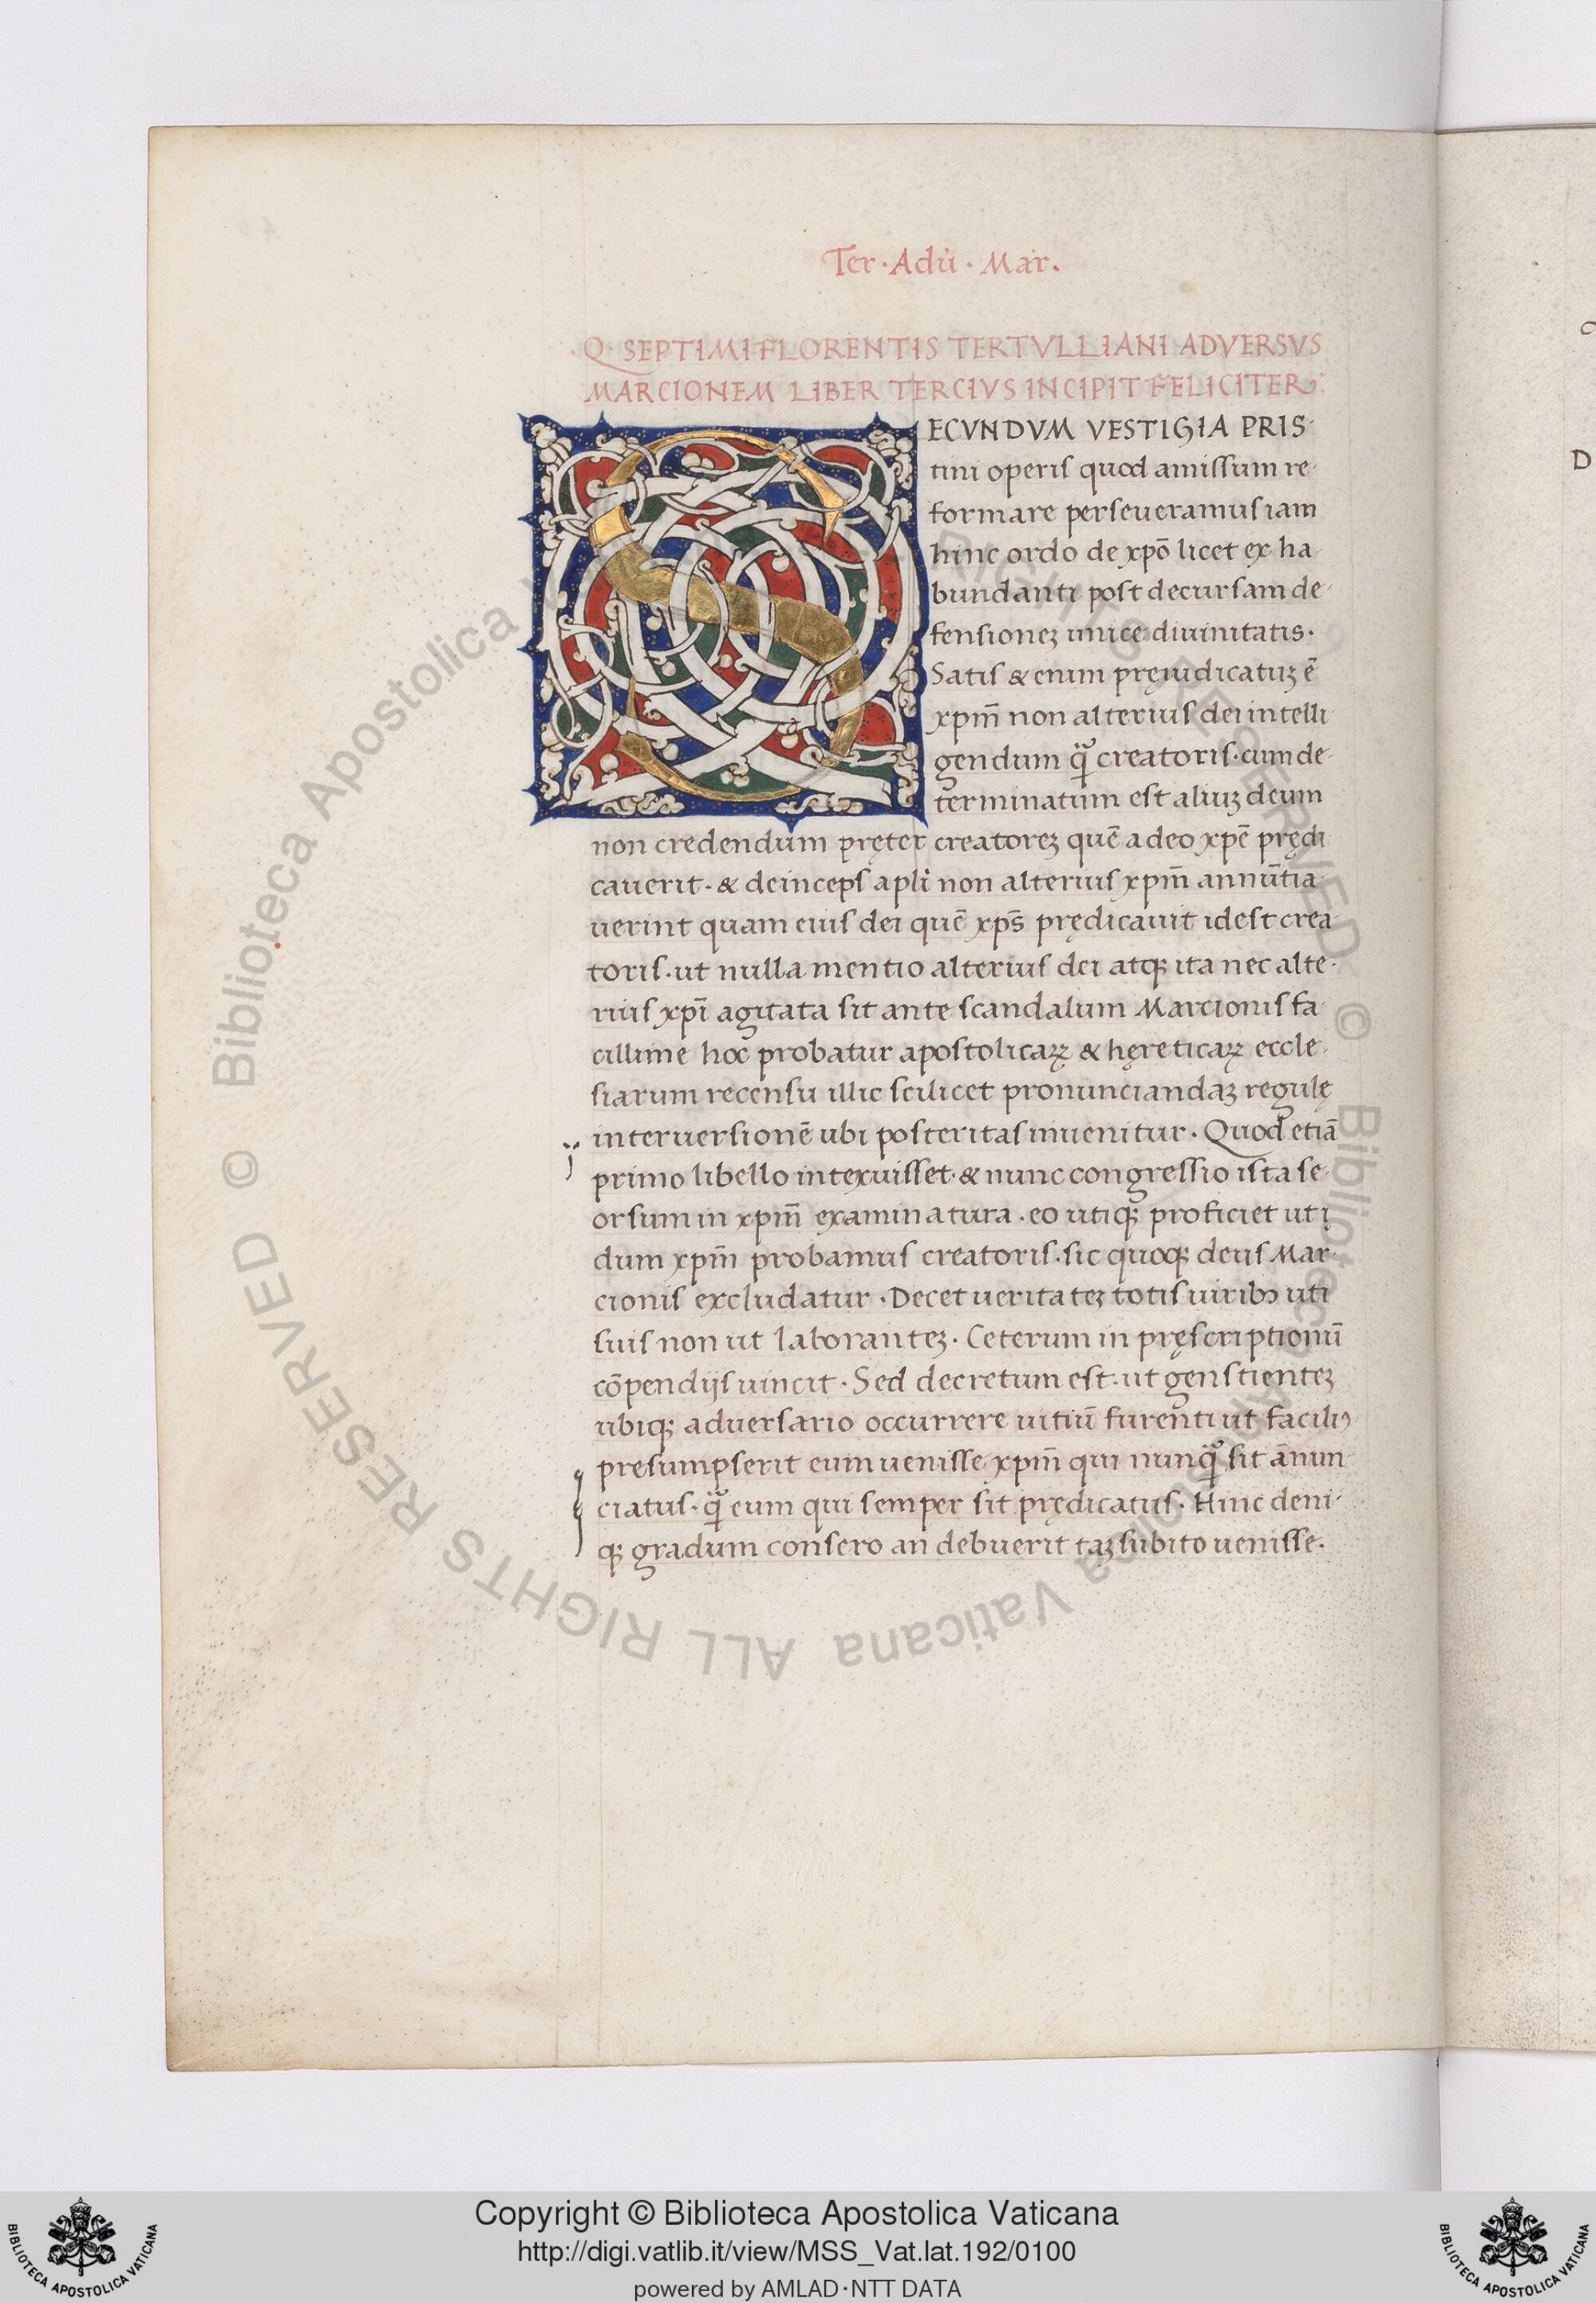 Ter · Adu̇ · Mar.
· Q · SEPTIMI FLORENTIS TERTVLLIANI ADVERSVS
MARCIONEM LIBER TERCIVS INCIPIT FELICITER :
SECVNDVM VESTIGIA PRIS·
tini operis quod amissum re·
formare perseueramus iam
hinc ordo de xp̄o licet ex ha·
bundanti post decursam de·
fensioneꝫ unice diuinitatis·
Satis & enim pręiudicatuꝫ ē
xpm̄ non alterius dei intelli·
gendum qͣꝫ creatoris · cum de·
terminatum est aliuꝫ deum
non credendum pręter creatoreꝫ quē a deo xpē prędi
cauerit · & deinceps apli non alterius xpm̄ annūtia·
uerint quam eius dei quē xps̄ prędicauit idest crea·
toris · ut nulla mentio alterius dei atqꝫ ita nec alte·
rius xpi̅ agitata sit ante scandalum Marcionis fa·
cillime hoc probatur apostolicaꝝ & hęreticaꝝ eccle·
siarum recensu illic scilicet pronunciandaꝫ regulę
interuersionē ubi posteritas inuenitur · Quod etiā
primo libello intexuisset · & nunc congressio ista se·
orsum in xpm̄ examinatura · eo utiqꝫ proficiet ut į
dum xpm̄ probamus creatoris · sic quoqꝫ deus Mar·
cionis excludatur · Decet ueritateꝫ totis uiribꝰ uti
suis non ut laboranteꝫ · Ceterum in pręscriptionū
cōpendijs uincit · Sed decretum est · ut genstienteꝫ
ubiqꝫ aduersario occurrere uitiū furenti ut faciliꝰ
presumpserit eum uenisse xpm̄ qui nunqͣꝫ sit ānun·
ciatus · qͣꝫ eum qui semper sit prędicatus · Hinc deni·
qꝫ gradum consero an debuerit taꝫ subito uenisse ·
© Biblioteca Apostolica Vaticana ALL RIGHTS RESERVED
Copyright © Biblioteca Apostolica Vaticana
http://digi.vatlib.it/view/MSS_Vat.lat.192/0100
powered by AMLAD·NTT DATA
BIBLIOTECA APOSTOLICA VATICANA
BIBLIOTECA APOSTOLICA VATICANA